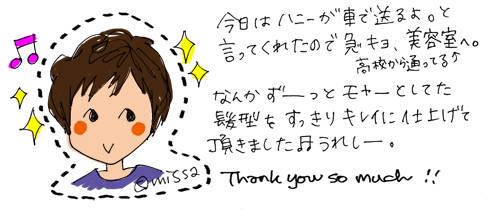 今日はハニーが車で送るよ。と
言ってくれたので急キョ、美容室へ。
高校から通ってる↑
なんかずーっとモャーとしてた
髪型をすっきりキレイに仕上げて
頂きました♫うれしー。
Thank you so much !!
@miss2